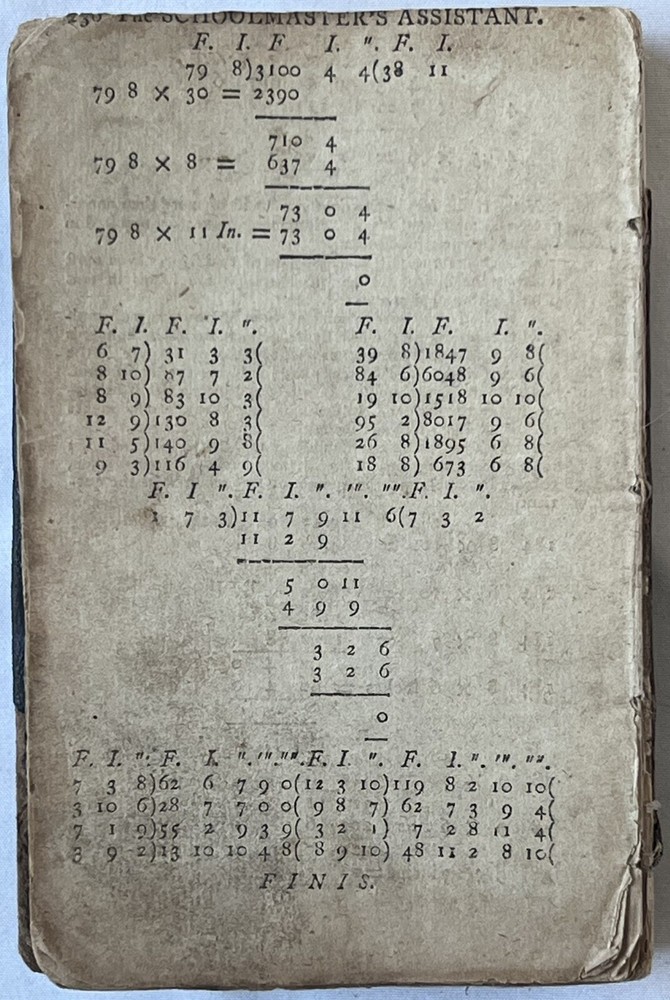 The SCHOOLMASTER'S ASSISTANT.
F. I. F. I. ″. F. I.
79 8)3100 4 4(38 11
79 8 × 30 = 2390
710 4
79 8 × 8 = 637 4
73 0 4
79 8 × 11 In. = 73 0 4
0
F. I. F. I. ″. F. I. F. I. ″.
6 7) 31 3 3( 39 8)1847 9 8(
8 10) 87 7 2( 84 6)6048 9 6(
8 9) 83 10 3( 19 10)1518 10 10(
12 9)130 8 3( 95 2)8017 9 6(
11 5)140 9 8( 26 8)1895 6 8(
9 3)116 4 9( 18 8) 673 6 8(
F. I ″. F. I. ″. ‴. ⁗. F. I. ″.
1 7 3)11 7 9 11 6(7 3 2
11 2 9
5 0 11
4 9 9
3 2 6
3 2 6
0
F. I. ″. F. I. ″. ‴. ⁗. F. I ″. F. I. ″. ‴. ⁗.
7 3 8)62 6 7 9 0(12 3 10)119 8 2 10 10(
3 10 6)28 7 7 0 0( 9 8 7) 62 7 3 9 4(
7 1 9)55 2 9 3 9( 3 2 1) 7 2 8 11 4(
3 9 2)13 10 10 4 8( 8 9 10) 48 11 2 8 10(
FINIS.